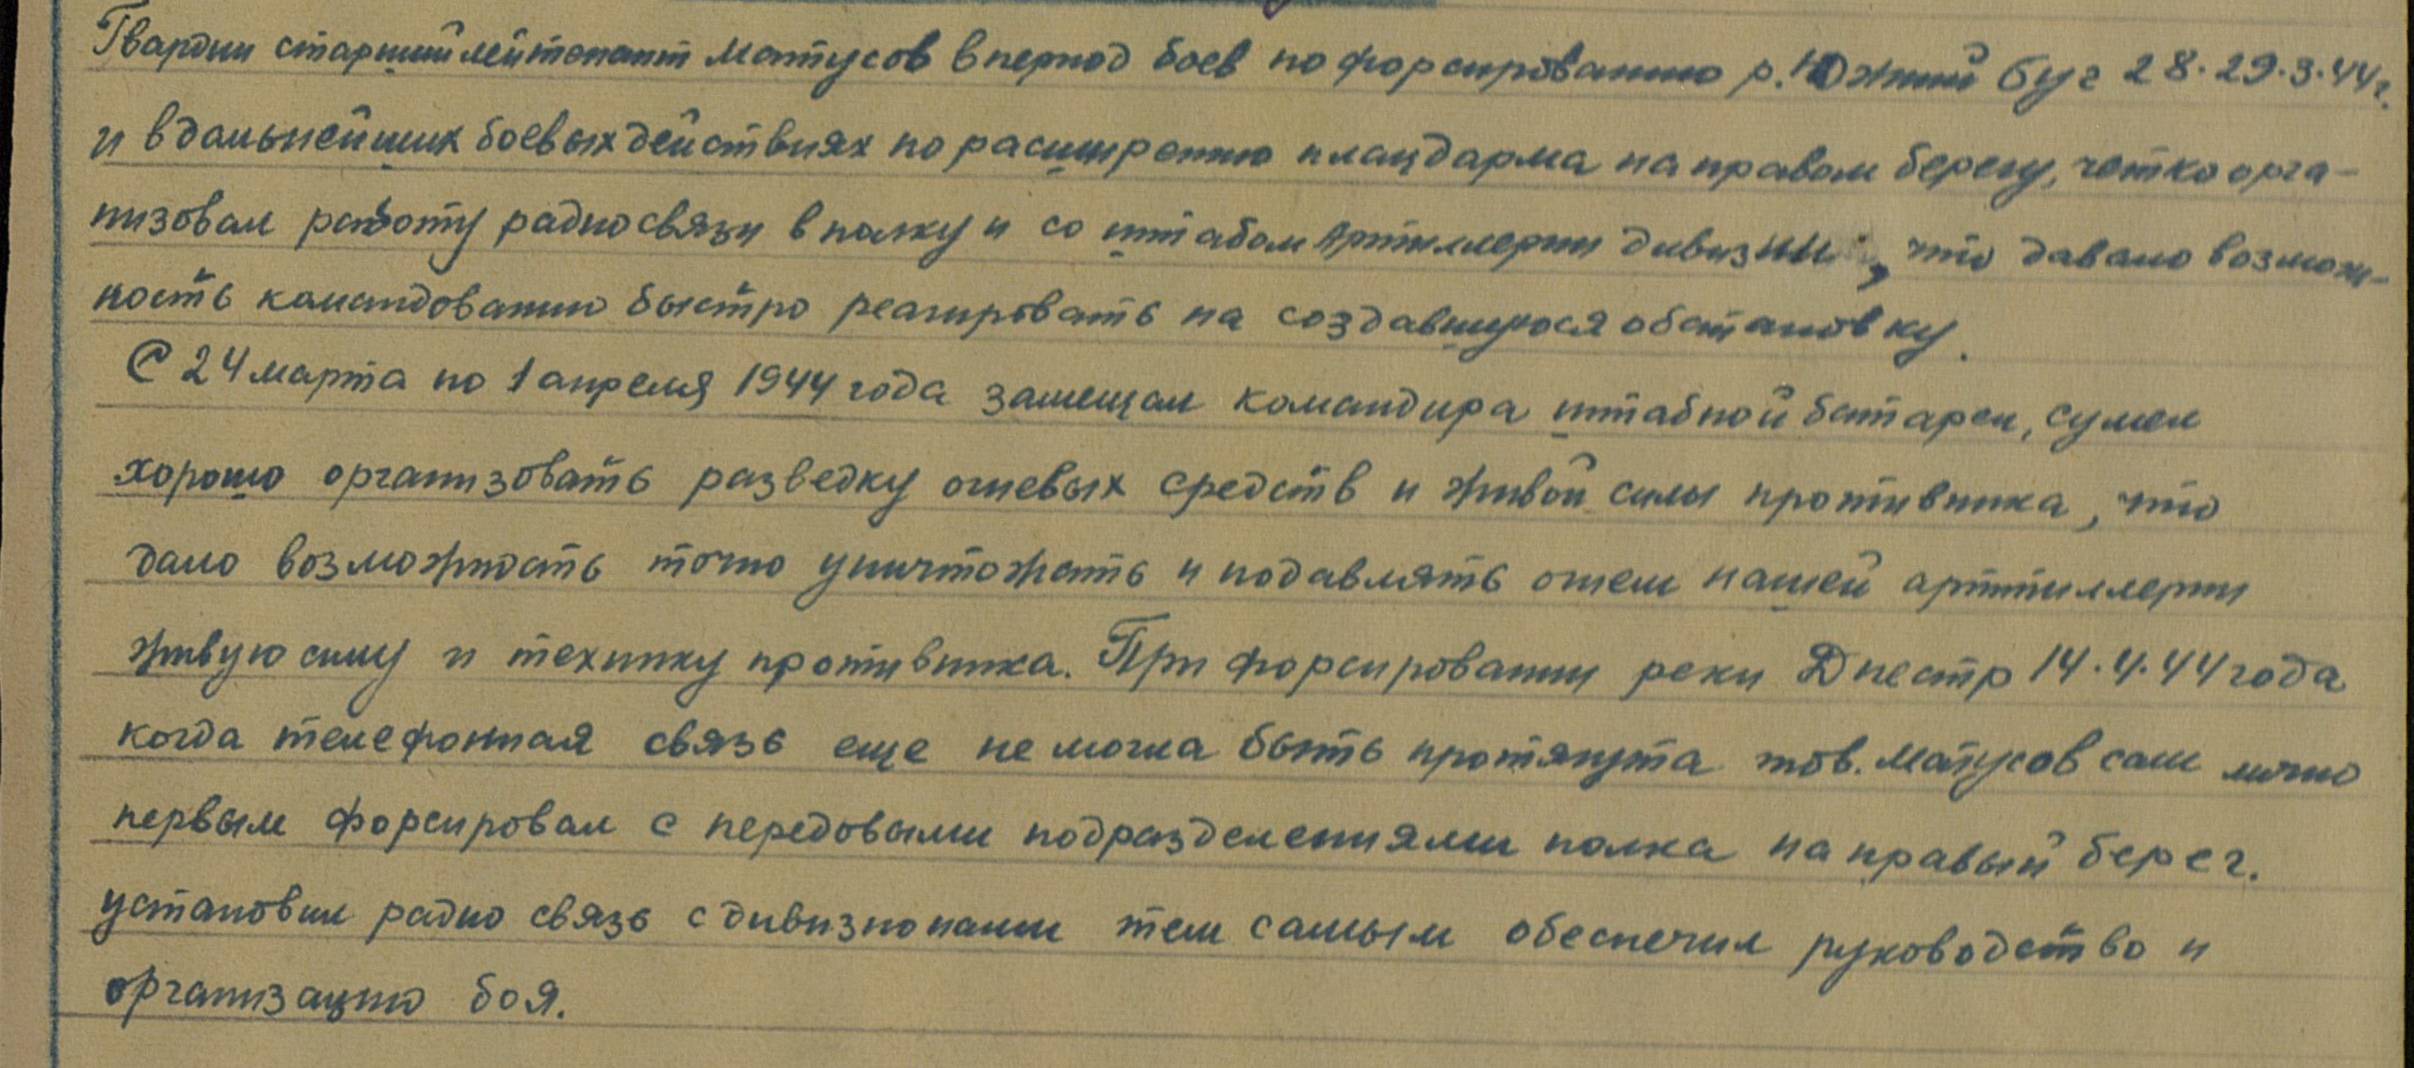 Гвардии старший лейтенант Матусов в период боев по форсированию р. Южный Буг 28-29.3.44г.
и в дальнейших боевых действиях по расширению плацдарма на правом берегу, четко орга-
низовал работу радиосвязи в полку и со штабом артиллерии дивизии, что давало возмож-
ность командованию быстро реагировать на создавшуюся обстановку.
С 24 марта по 1 апреля 1944 года замещал командира штабной батареи, сумел
хорошо организовать разведку огневых средств и живой силы противника, что
дало возможность точно уничтожать и подавлять огнем нашей артиллерии
живую силу и технику противника. При форсировании реки Днестр 14.4.44 года
когда телефонная связь еще не могла быть протянута тов. Матусов сам лично
первым форсировал с передовыми подразделениями полка на правый берег.
установил радио связь с дивизионами тем самым обеспечил руководство и
организацию боя.